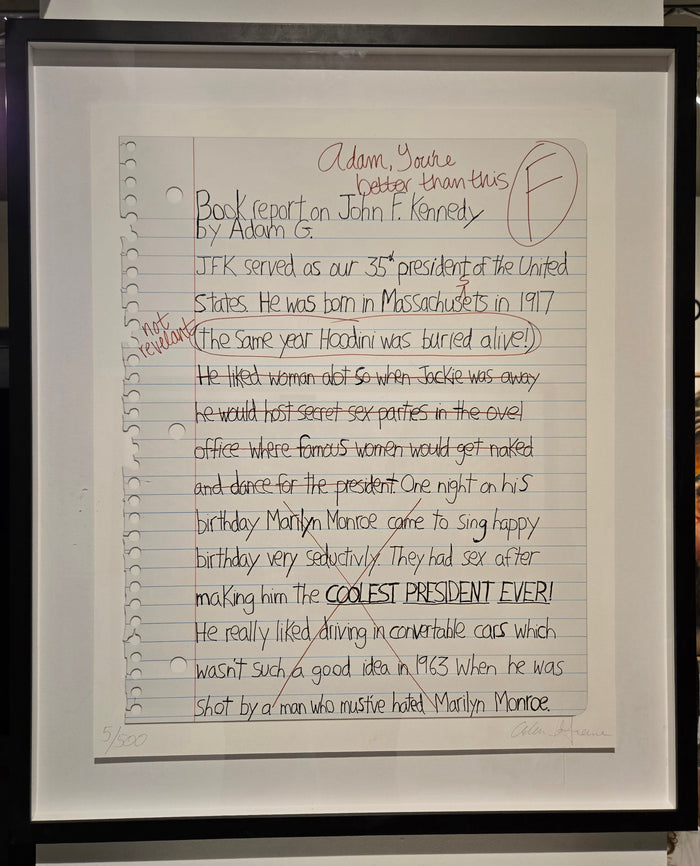 Adam, You're
better than this
F
Book report on John F. Kennedy
by Adam G.
JFK served as our 35th president of the United
s
States. He was born in Massachusets in 1917
not
revelant
(the same year Hoodini was buried alive!)
He liked woman alot so when Jackie was away
he would host secret sex parties in the ovel
office where famous women would get naked
and dance for the president. One night on his
birthday Marilyn Monroe came to sing happy
birthday very seductivly. They had sex after
making him the COOLEST PRESIDENT EVER!
He really liked driving in convertable cars which
wasn't such a good idea in 1963 when he was
shot by a man who must've hated Marilyn Monroe.
5/500